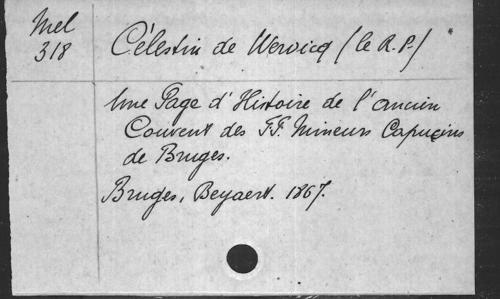 Mel
318
Célestin de Wervicq (le R. P.)
Une Page d'Histoire de l'ancien
Couvent des FF. Mineurs Capucins
de Bruges.
Bruges, Beyaert. 1867.